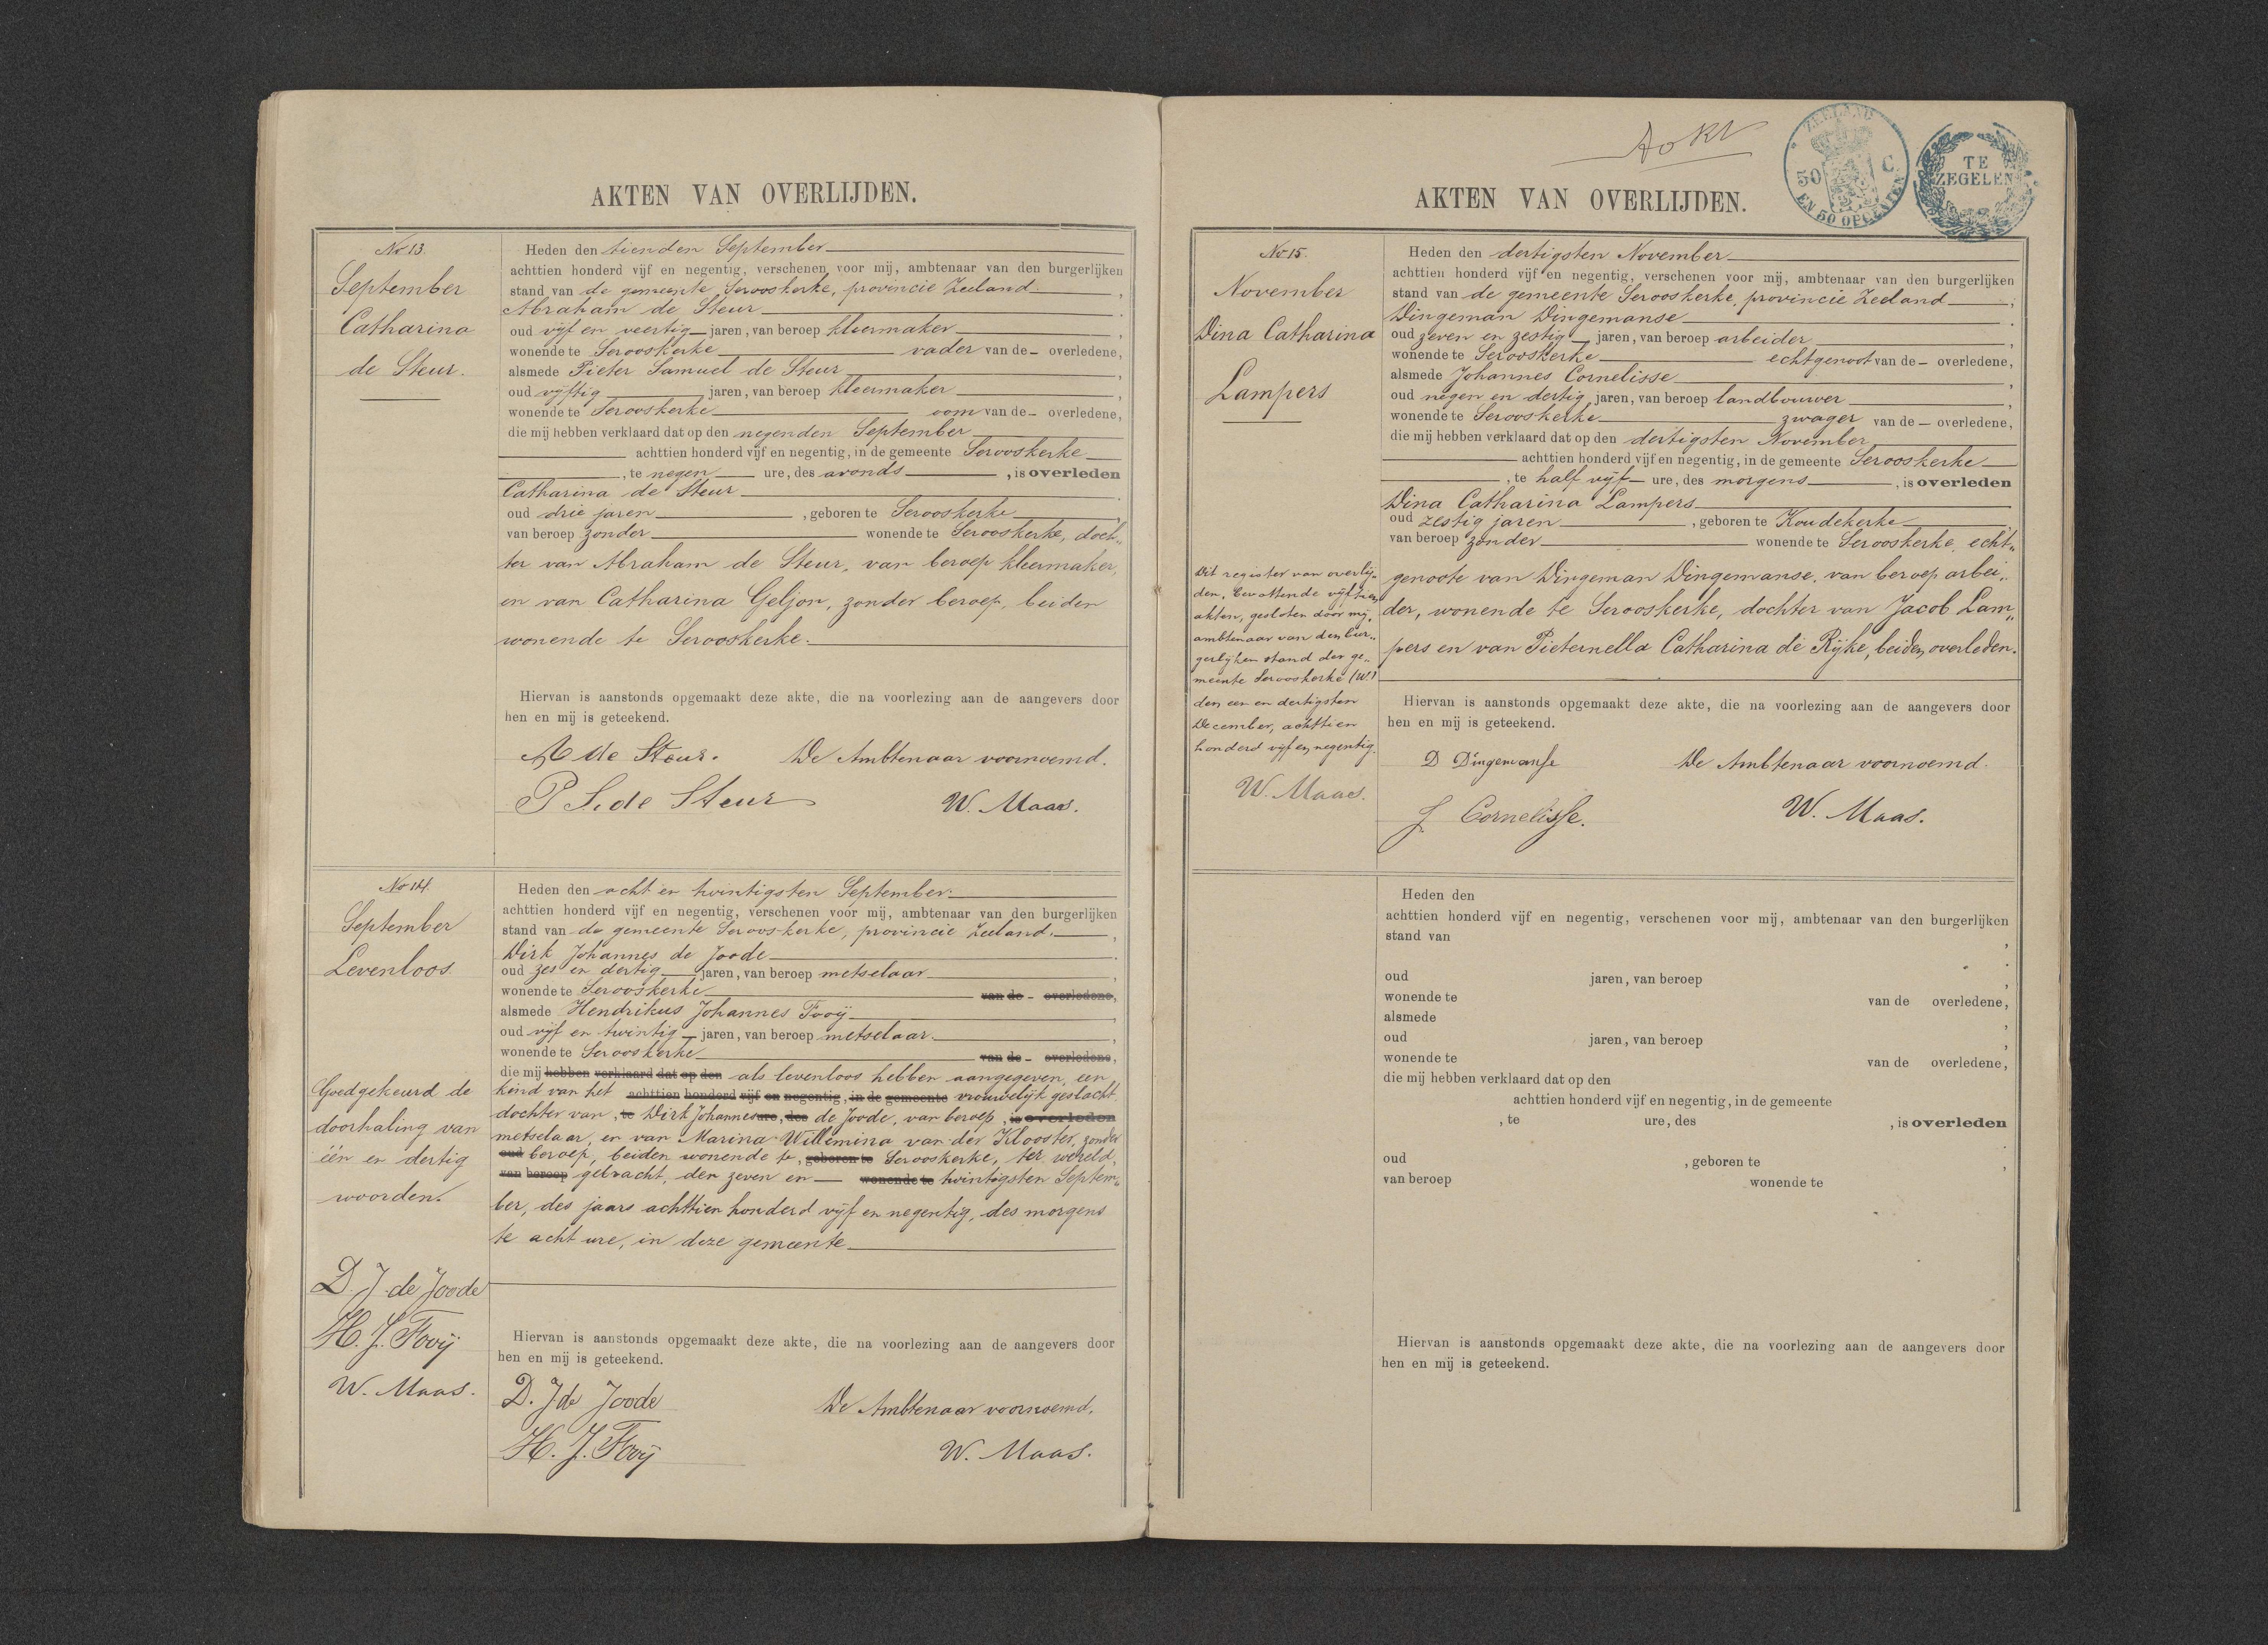 AKTEN VAN OVERLIJDEN.
No 13.
September
Catharina
de Steur.
Heden den tienden September
achttien honderd vijf en negentig, verschenen voor mij, ambtenaar van den burgerlijken
stand van de gemeente Serooskerke, provincie Zeeland.,
Abraham de Steur
oud vijf en veertig jaren, van beroep kleermaker,
wonende te Serooskerke vader van de overledene,
alsmede Pieter Samuel de Steur,
oud vijftig jaren, van beroep kleermaker,
wonende te Serooskerke oom van de overledene,
die mij hebben verklaard dat op den negenden September
achttien honderd vijf en negentig, in de gemeente Serooskerke
, te negen ure, des avonds, is overleden
Catharina de Steur
oud drie jaren, geboren te Serooskerke,
van beroep zonder wonende te Serooskerke, doch„
ter van Abraham de Steur, van beroep kleermaker,
en van Catharina Geljon, zonder beroep, beiden
wonende te Serooskerke.
Hiervan is aanstonds opgemaakt deze akte, die na voorlezing aan de aangevers door
hen en mij is geteekend.
A de Steur. De Ambtenaar voornoemd.
P S. de Steur W. Maas.
No 14.
September
Levenloos.
Goedgekeurd de
doorhaling van
één en dertig
woorden.
D. J. de Joode
H. J. Fooij
W. Maas.
Heden den acht en twintigsten September.
achttien honderd vijf en negentig, verschenen voor mij, ambtenaar van den burgerlijken
stand van de gemeente Serooskerke, provincie Zeeland.,
Dirk Johannes de Joode
oud zes en dertig jaren, van beroep metselaar,
wonende te Serooskerke van de overledene,
alsmede Hendrikus Johannes Fooij,
oud vijf en twintig jaren, van beroep metselaar.,
wonende te Serooskerke van de overledene,
die mij hebben verklaard dat op den als levenloos hebben aangegeven, een
kind van het achttien honderd vijf en negentig, in de gemeente vrouwelijk geslacht.
dochter van, te Dirk Johannes ure, des de Joode, van beroep, is overleden
metselaar, en van Marina Willemina van der Klooster, zonder
oud beroep, beiden wonende te, geboren te Serooskerke, ter wereld,
van beroep gebracht, den zeven en wonende te twintigsten Septem„
ber, des jaars achttien honderd vijf en negentig, des morgens
te acht ure, in deze gemeente
Hiervan is aanstonds opgemaakt deze akte, die na voorlezing aan de aangevers door
hen en mij is geteekend.
D. J de Joode De Ambtenaar voornoemd.
H. J. Fooij W. Maas.
ZEELAND
50 C.
EN 50 OPCENTEN
TE
ZEGELEN
AKTEN VAN OVERLIJDEN.
No 15.
November
Dina Catharina
Lampers
Dit register van overlij„
den, bevattende vijftien
akten, gesloten door mij,
ambtenaar van den bur„
gerlijken stand der ge„
meente Serooskerke (W.)
den een en dertigsten
December, achttien
honderd vijf en negentig.
W. Maas.
Heden den dertigsten November
achttien honderd vijf en negentig, verschenen voor mij, ambtenaar van den burgerlijken
stand van de gemeente Serooskerke, provincie Zeeland,
Dingeman Dingemanse
oud zeven en zestig jaren, van beroep arbeider,
wonende te Serooskerke echtgenoot van de overledene,
alsmede Johannes Cornelisse,
oud negen en dertig jaren, van beroep landbouwer,
wonende te Serooskerke zwager van de overledene,
die mij hebben verklaard dat op den dertigsten November
achttien honderd vijf en negentig, in de gemeente Serooskerke
, te half vijf ure, des morgens, is overleden
Dina Catharina Lampers
oud zestig jaren, geboren te Koudekerke,
van beroep zonder wonende te Serooskerke, echt„
genoote van Dingeman Dingemanse, van beroep arbei„
der, wonende te Serooskerke, dochter van Jacob Lam„
pers en van Pieternella Catharina de Rijke, beiden overleden.
Hiervan is aanstonds opgemaakt deze akte, die na voorlezing aan de aangevers door
hen en mij is geteekend.
D Dingemanse De Ambtenaar voornoemd.
J. Cornelisse. W. Maas.
Heden den
achttien honderd vijf en negentig, verschenen voor mij, ambtenaar van den burgerlijken
stand van,
oud jaren, van beroep,
wonende te van de overledene,
alsmede,
oud jaren, van beroep,
wonende te van de overledene,
die mij hebben verklaard dat op den
achttien honderd vijf en negentig, in de gemeente
, te ure, des, is overleden
oud, geboren te,
van beroep wonende te
Hiervan is aanstonds opgemaakt deze akte, die na voorlezing aan de aangevers door
hen en mij is geteekend.